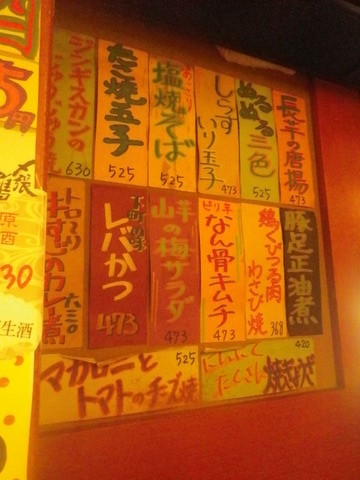 長芋の唐揚
473
ぬるぬる三色
525
しらすいり玉子
473
あっさり
塩焼そば
525
たこ焼玉子
525
ジンギスカンの
630
豚足正油煮
鶏くびつる肉
わさび焼
368
ピリ辛
なん骨キムチ
473
山芋の梅サラダ
473
下町の味
レバかつ
473
トロ〜リ
牛すじのカレー煮
六三〇
マカロニと
トマトのチーズ焼
525
にんにく
たくさん
焼ぎょうざ
420
5円
〆張
原
酒
30
生酒